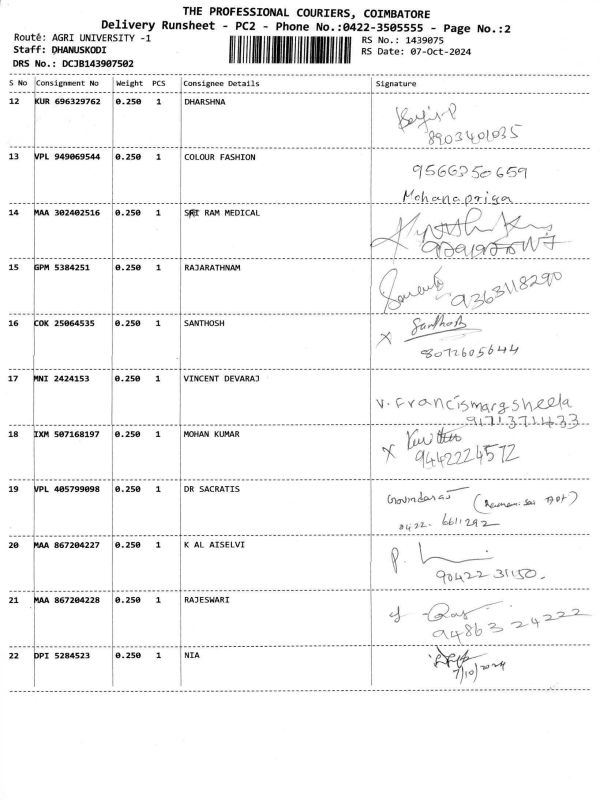 THE PROFESSIONAL COURIERS, COIMBATORE
Delivery Runsheet - PC2 - Phone No.:0422-3505555 - Page No.:2
Route: AGRI UNIVERSITY -1
RS No.: 1439075
Staff: DHANUSKODI
RS Date: 07-Oct-2024
DRS No.: DCJB143907502
S No Consignment No Weight PCS Consignee Details Signature
12 KUR 696329762 0.250 1 DHARSHNA
8903401035
13 VPL 949069544 0.250 1 COLOUR FASHION
9566350659
Mohanapriya
14 MAA 302402516 0.250 1 SRI RAM MEDICAL
15 GPM 5384251 0.250 1 RAJARATHNAM
9363118290
16 COK 25064535 0.250 1 SANTHOSH
x Santhosh
8072605644
17 MNI 2424153 0.250 1 VINCENT DEVARAJ
V. Francismargsheela
9171371433
18 IXM 507168197 0.250 1 MOHAN KUMAR
x
9442224572
19 VPL 405799098 0.250 1 DR SACRATIS
Govindaraj
0422-6611292
20 MAA 867204227 0.250 1 K AL AISELVI
P.
90422 31150.
21 MAA 867204228 0.250 1 RAJESWARI
94863 24222
22 DPI 5284523 0.250 1 NIA
7/10/2024